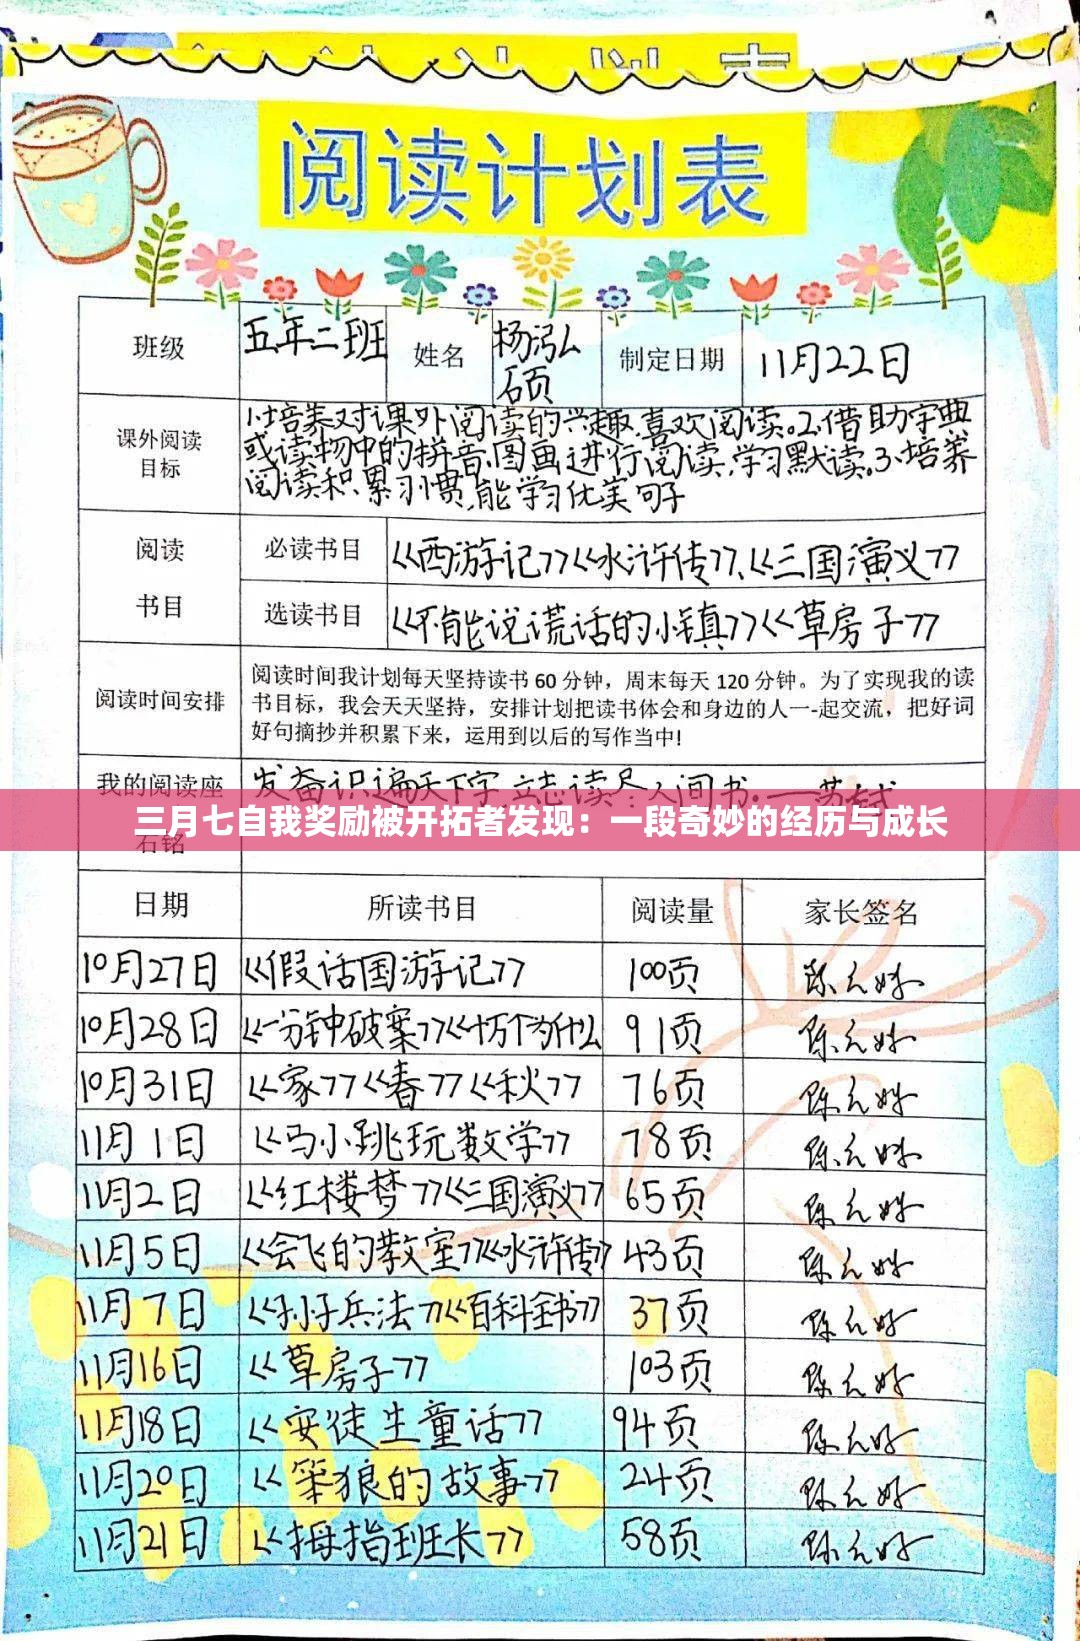 阅读计划表
班级 五年二班 姓名 杨泓硕 制定日期 11月22日
课外阅读目标
1.培养对课外阅读的兴趣,喜欢阅读。2.借助字典
或读物中的拼音、图画进行阅读,学习默读。3.培养
阅读积累习惯,能学习优美句子
阅读书目 必读书目 <<西游记>><<水浒传>>、<<三国演义>>
选读书目 <<不能说谎话的小镇>><<草房子>>
阅读时间安排
阅读时间我计划每天坚持读书 60 分钟，周末每天 120 分钟。为了实现我的读
书目标，我会天天坚持，安排计划把读书体会和身边的人一-起交流，把好词
好句摘抄并积累下来，运用到以后的写作当中!
我的阅读座 发奋识遍天下字 立志读尽人间书.——苏轼
三月七自我奖励被开拓者发现：一段奇妙的经历与成长
右铭
日期 所读书目 阅读量 家长签名
10月27日 <<假话国游记>> 100页
10月28日 <<一分钟破案>><<十万个为什么 91页
10月31日 <<家>><<春>><<秋>> 76页
11月1日 <<马小跳玩数学>> 78页
11月2日 <<红楼梦>><<三国演义>> 65页
11月5日 <<会飞的教室>><<水浒传>> 43页
11月7日 <<孙子兵法>><<百科全书>> 37页
11月16日 <<草房子>> 103页
11月18日 <<安徒生童话>> 94页
11月20日 <<笨狼的故事>> 24页
11月21日 <<拇指班长>> 58页